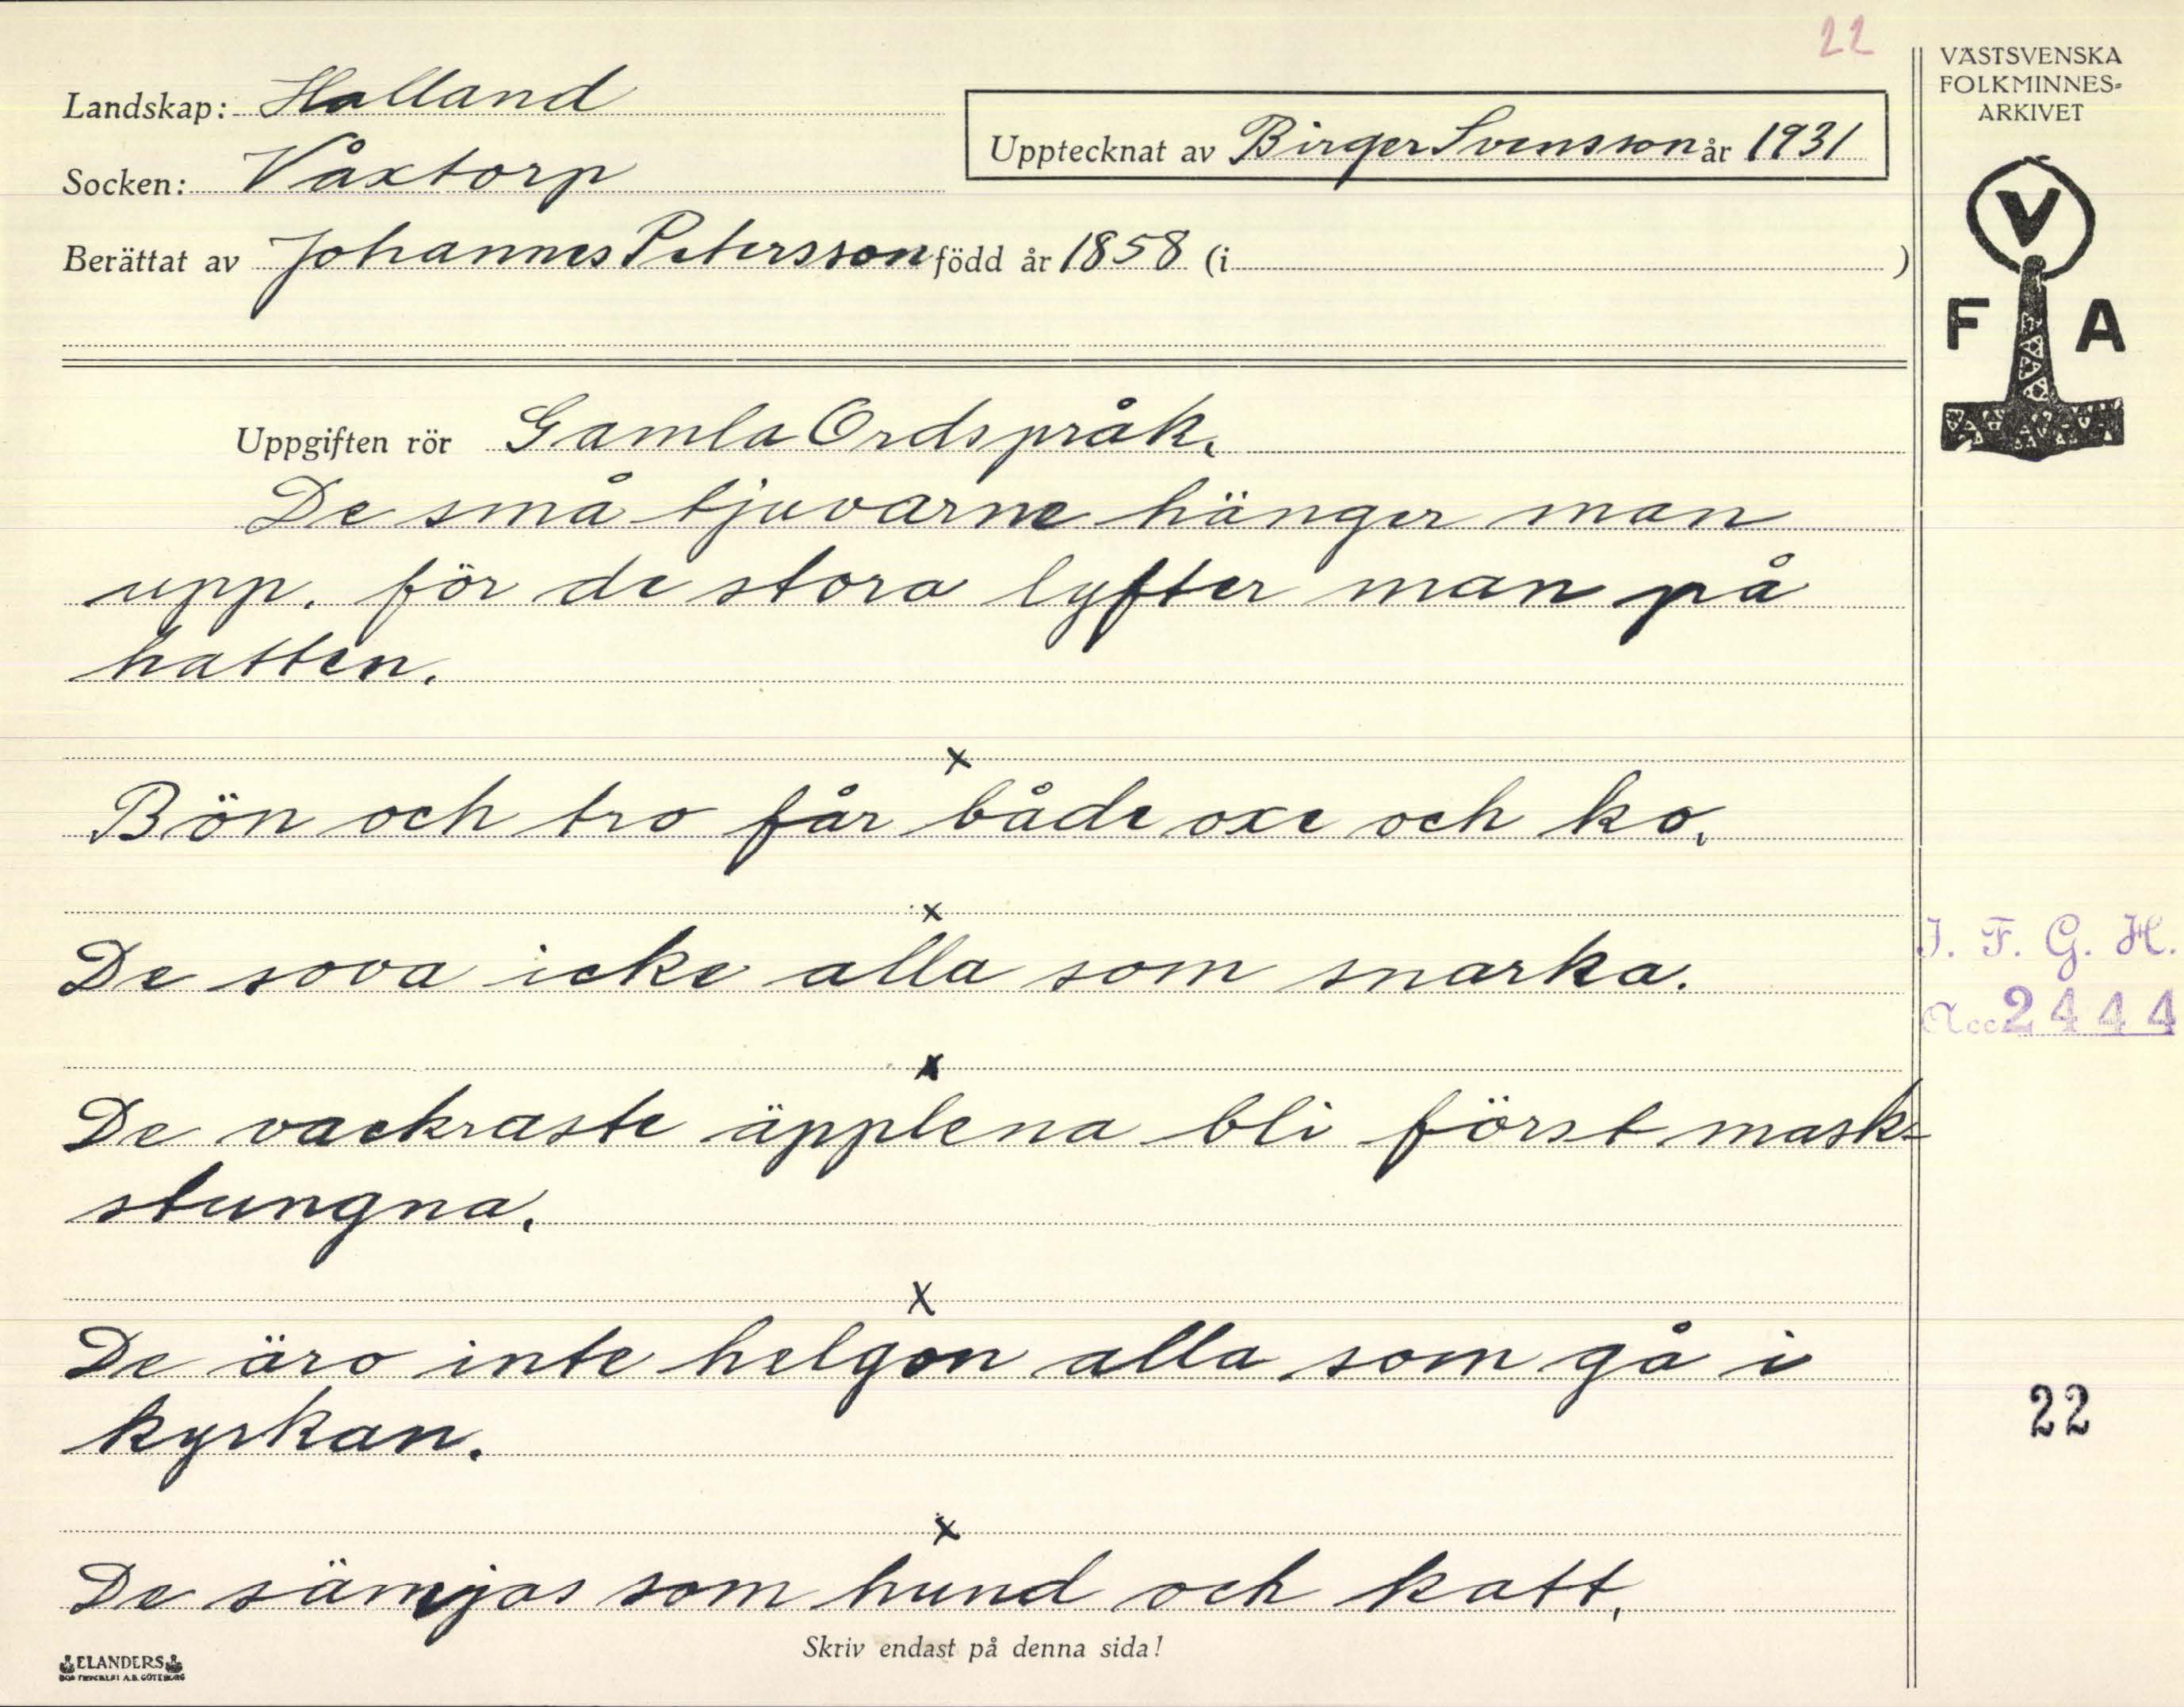 22
VÄSTSVENSKA
FOLKMINNES-
ARKIVET
Landskap: Halland
Upptecknat av Birger Svensson år 1931
Socken: Våxtorp
Berättat av Johannes Petersson född år 1858 (i )
V
F A
Uppgiften rör Gamla Ordspråk.
De små tjuvarne hänger man
upp. för de stora lyfter man på
hatten.
x
Bön och tro får både oxe och ko.
x
De sova icke alla som snarka.
x
De vackraste äpplena bli först mask-
stungna.
x
De äro inte helgon alla som gå i
kyrkan.
x
De sämjas som hund och katt.
I. F. G. H.
Acc 2444
22
Skriv endast på denna sida!
ELANDERS
A.B. GÖTEBORG